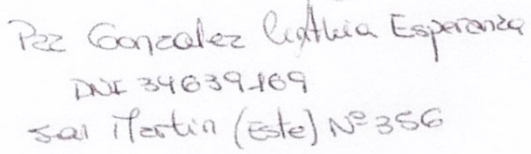 Paz Gonzalez Cinthia Esperanza
DNI 34639169
San Martin (Este) Nº 356